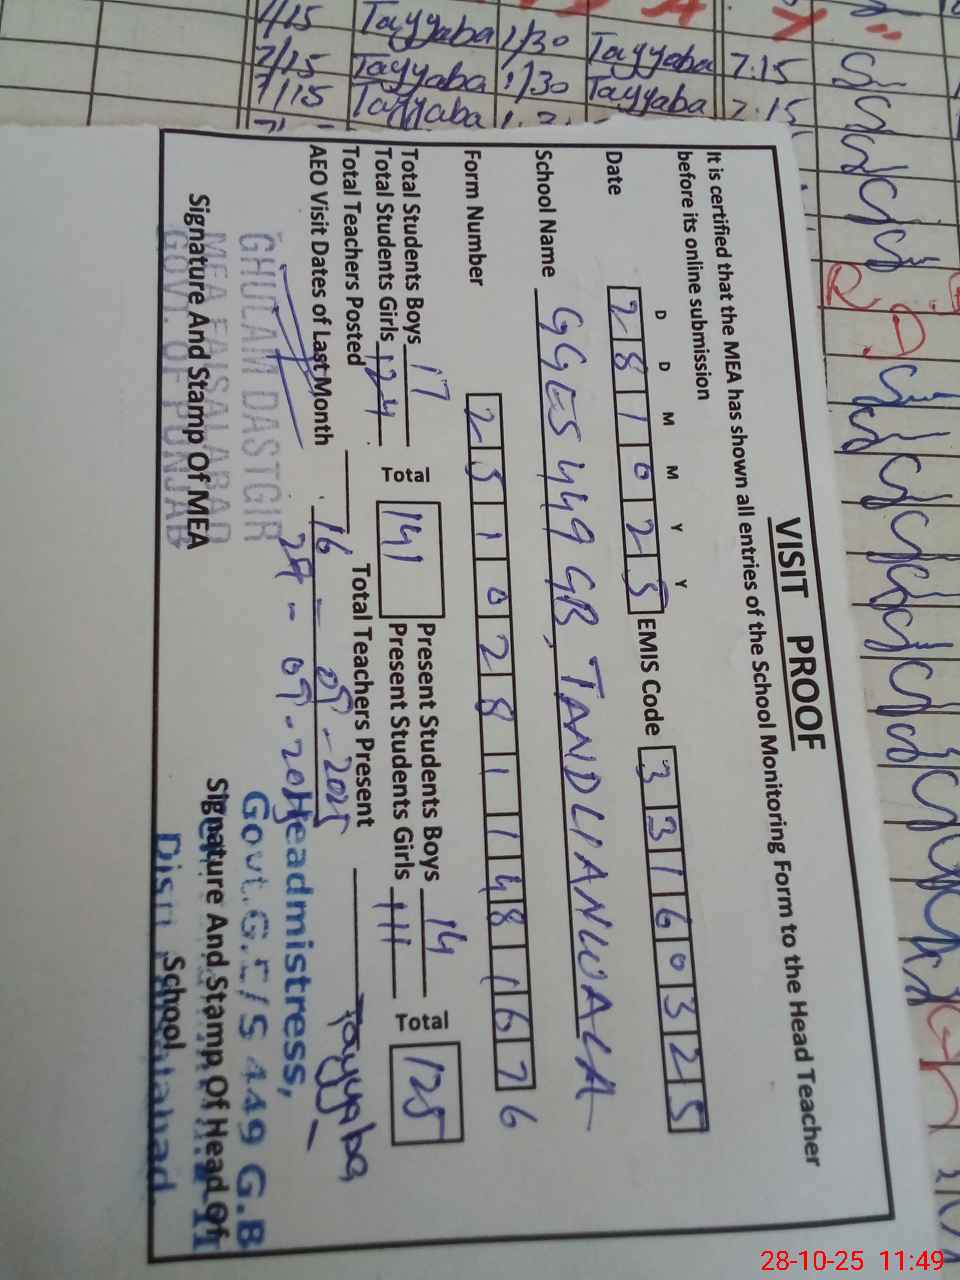 7/15 Tayyaba 1/30 Tayyaba 7.15
7/15 Tayyaba 1/30 Tayyaba 7.15
7/15 Tayyaba
VISIT PROOF
It is certified that the MEA has shown all entries of the School Monitoring Form to the Head Teacher
before its online submission
D D M M Y Y
Date 281025 EMIS Code 33160325
School Name GGES 449 GB, TANDLIANWALA
Form Number 25102811481676
Total Students Boys 17 Total 141 Present Students Boys 14 Total 125
Total Students Girls 124 Present Students Girls 111
Total Teachers Posted Total Teachers Present
AEO Visit Dates of Last Month 16-09-2025
29-09-2025
Tayyaba
GHULAM DASTGIR
MEA FAISALABAD
GOVT. OF PUNJAB
Signature And Stamp Of MEA
Headmistress,
Govt. G.E/S 449 G.B
Signature And Stamp Of Head Of
School
28-10-25 11:49